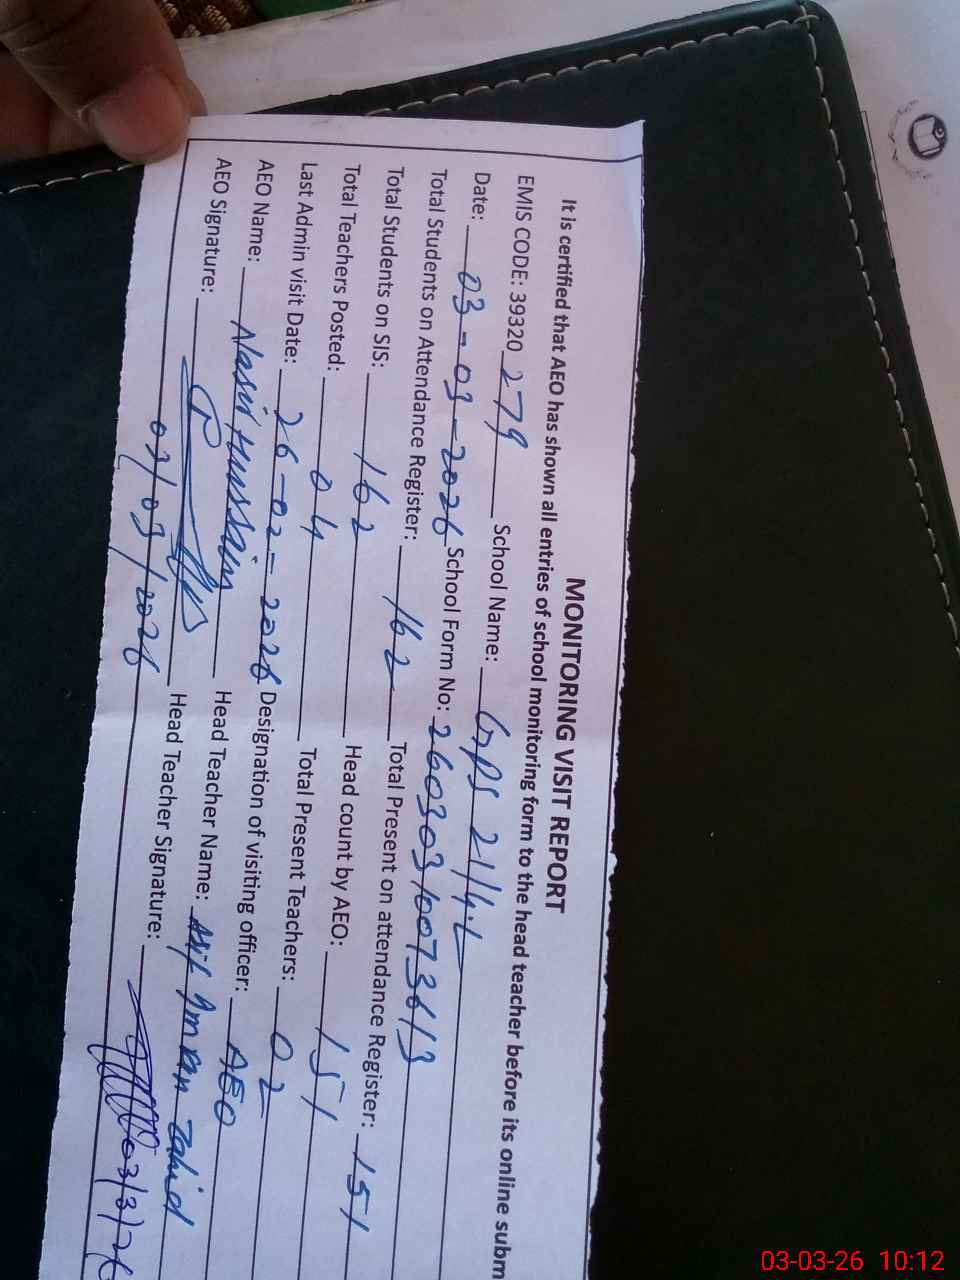 MONITORING VISIT REPORT
It is certified that AEO has shown all entries of school monitoring form to the head teacher before its online subm
EMIS CODE: 39320 279 School Name: GPS 21/4-L
Date: 03-03-2026 School Form No: 26030310073613
Total Students on Attendance Register: 162 Total Present on attendance Register: 151
Total Students on SIS: 162 Head count by AEO: 151
Total Teachers Posted: 04 Total Present Teachers: 02
Last Admin visit Date: 26-02-2026 Designation of visiting officer: AEO
AEO Name: Nasir Hussain Head Teacher Name: Asif Imran Zahid
AEO Signature: Head Teacher Signature: 03/3/26
03/03/2026
03-03-26 10:12